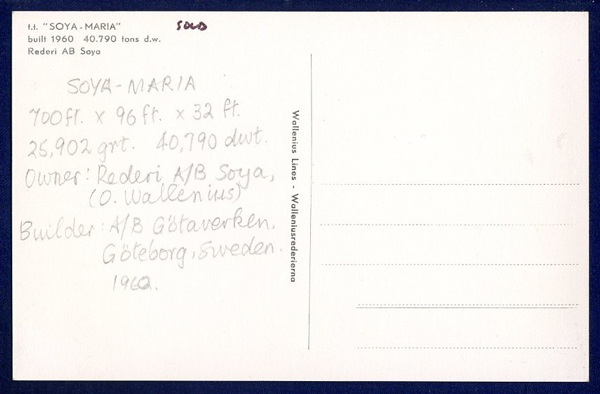 t.t. "SOYA-MARIA"
built 1960 40.790 tons d.w.
Rederi AB Soya
SOLD
SOYA-MARIA
700ft. x 96ft. x 32 ft.
25,902 grt. 40,790 dwt.
Owner: Rederi A/B Soya,
(O. Wallenius)
Builder: A/B Götaverken,
Göteborg, Sweden.
1960.
Wallenius Lines - Walleniusrederierna